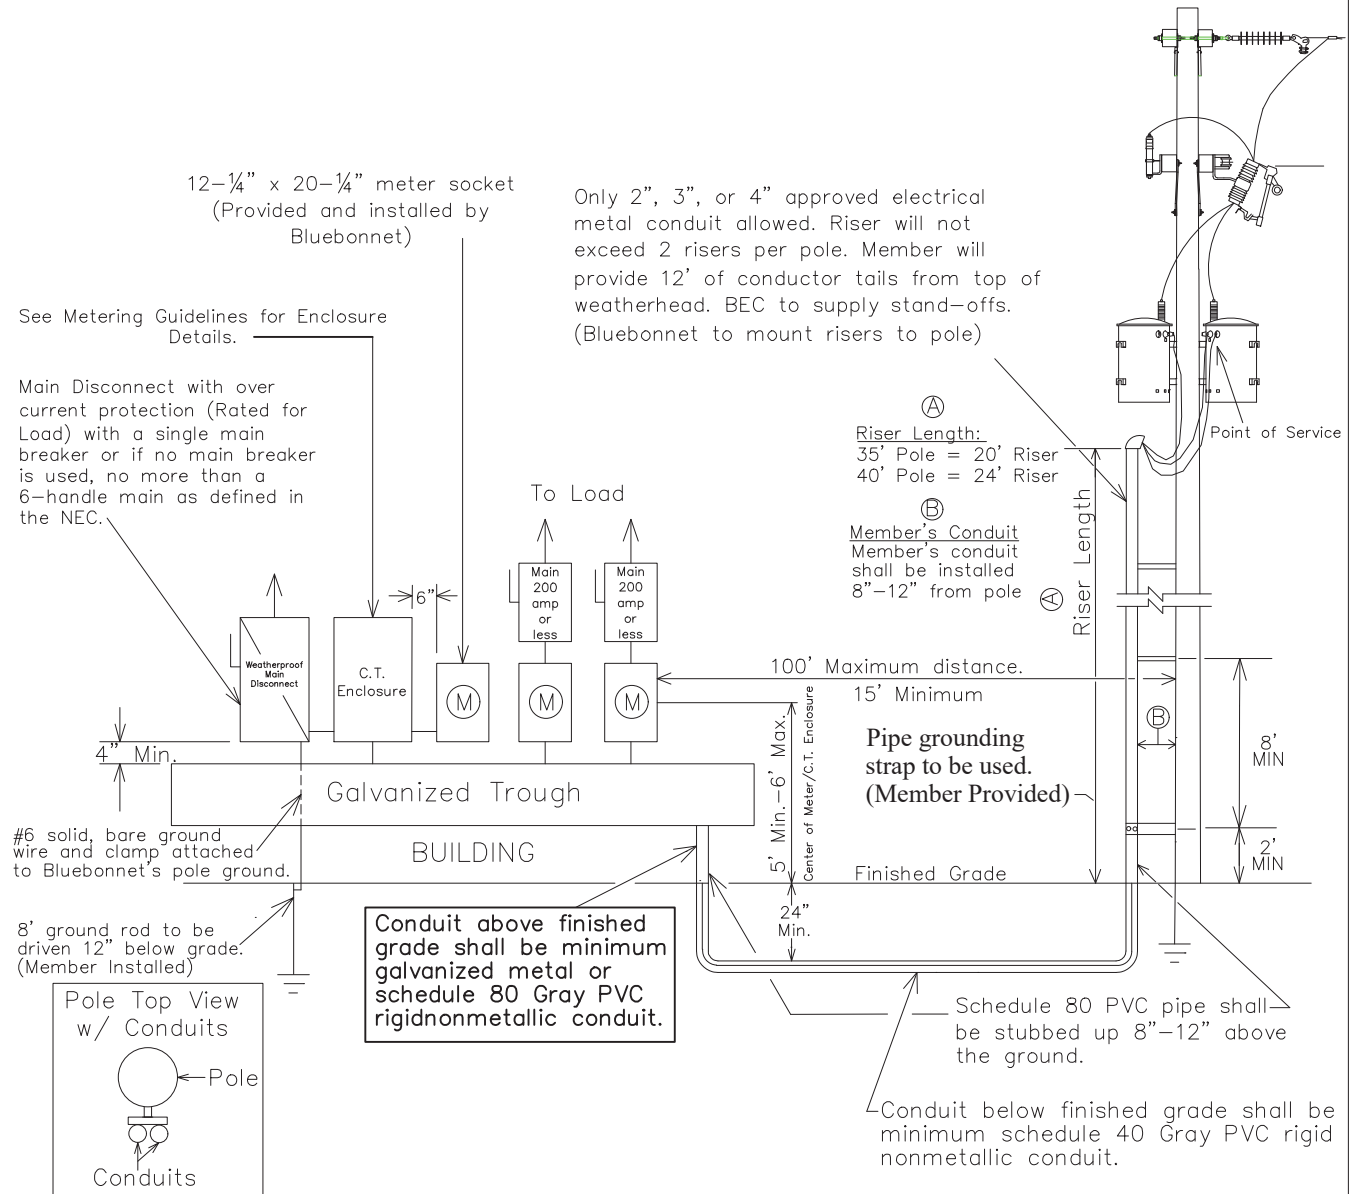 12-¼" x 20-¼" meter socket
(Provided and installed by
Bluebonnet)
Only 2", 3", or 4" approved electrical
metal conduit allowed. Riser will not
exceed 2 risers per pole. Member will
provide 12' of conductor tails from top of
weatherhead. BEC to supply stand-offs.
(Bluebonnet to mount risers to pole)
See Metering Guidelines for Enclosure
Details.
Main Disconnect with over
current protection (Rated for
Load) with a single main
breaker or if no main breaker
is used, no more than a
6-handle main as defined in
the NEC.
A
Riser Length:
35' Pole = 20' Riser
40' Pole = 24' Riser
B
Member's Conduit
Member's conduit
shall be installed
8"-12" from pole
Point of Service
A Riser Length
To Load
Main
200
amp
or
less
Main
200
amp
or
less
6"
Weatherproof
Main
Disconnect
C.T.
Enclosure
M
M
M
100' Maximum distance.
15' Minimum
B
8'
MIN
2'
MIN
4" Min.
Galvanized Trough
5' Min.-6' Max.
Center of Meter/C.T. Enclosure
Pipe grounding
strap to be used.
(Member Provided)
#6 solid, bare ground
wire and clamp attached
to Bluebonnet's pole ground.
BUILDING
Finished Grade
24"
Min.
8' ground rod to be
driven 12" below grade.
(Member Installed)
Conduit above finished
grade shall be minimum
galvanized metal or
schedule 80 Gray PVC
rigidnonmetallic conduit.
Pole Top View
w/ Conduits
Pole
Conduits
Schedule 80 PVC pipe shall
be stubbed up 8"-12" above
the ground.
Conduit below finished grade shall be
minimum schedule 40 Gray PVC rigid
nonmetallic conduit.